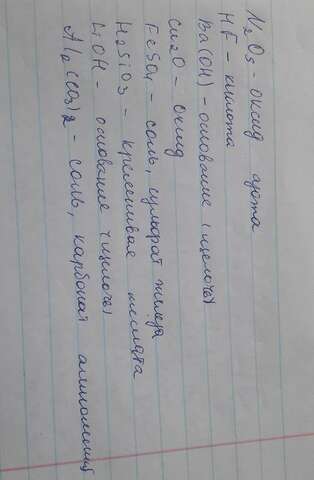 N2O5 - оксид азота
HF - кислота
Ba(OH) - основание (щелочь)
Cu2O - оксид
FeSO4 - соль, сульфат железа
H2SiO3 - кремниевая кислота
LiOH - основание (щелочь)
Al2(CO3)2 - соль, карбонат алюминия